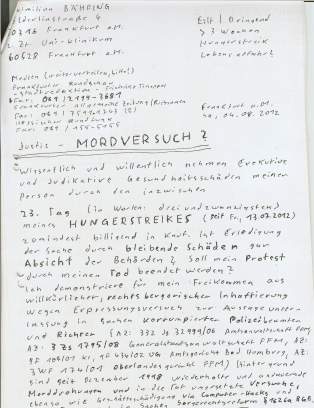 Maximilian BÄHRING
Hölderlinstraße 4
60316 Frankfurt a.M.
z. Zt. Uni-klinikum
60528 Frankfurt a.M.
Eilt / Dringend
> 3 Wochen
Hungerstreik
Lebensgefahr!
Medien (weiterverteilen, bitte!)
Frankfurter Rundschau
Fax: 069 / 2199-3681
Frankfurter Allgemeine Zeitung
Hessischer Rundfunk
Fax: 069 / 155-5055
Frankfurt a.M.
Sa, 04.08.2012
Justiz - MORDVERSUCH?
Wissentlich und willentlich nehmen Exekutive
und Judikative Gesundheitsschäden meiner
Person durch den inzwischen
23. Tag (in Worten: dreiundzwanzigsten)
meines HUNGERSTREIKES (seit Fr, 13.07.2012)
zumindest billigend in Kauf. Ist Erledigung
der Sache durch bleibende Schäden gar
Absicht der Behörden? Soll mein Protest
durch meinen Tod beendet werden?
Ich demonstriere für mein Freikommen aus
willkürlicher, rechtsbeugerischer Inhaftierung
wegen Erpressungsversuch zur Aussageunter-
lassung in Sachen korrumpierter Polizeibeamten
und Richter (AZ: 332 Js 32999/06 Amtsanwaltschaft FFM,
AZ: 3 Zs 1795/08 Generalstaatsanwaltschaft FFM, AZ:
9F 104/01 KI, 9F 434/02 UG Amtsgericht Bad Homburg, AZ:
3 WF 174/01 Oberlandesgericht FFM) Hintergrund
sind seit Dezember 1998 wiederholte und andauernde
Morddrohungen und in die Tat umgesetzte Versuche,
ebenso wie Geschäftsschädigung via Computer-Hacks und
in Sachen Sorgerechtsreform § 1626a BGB.